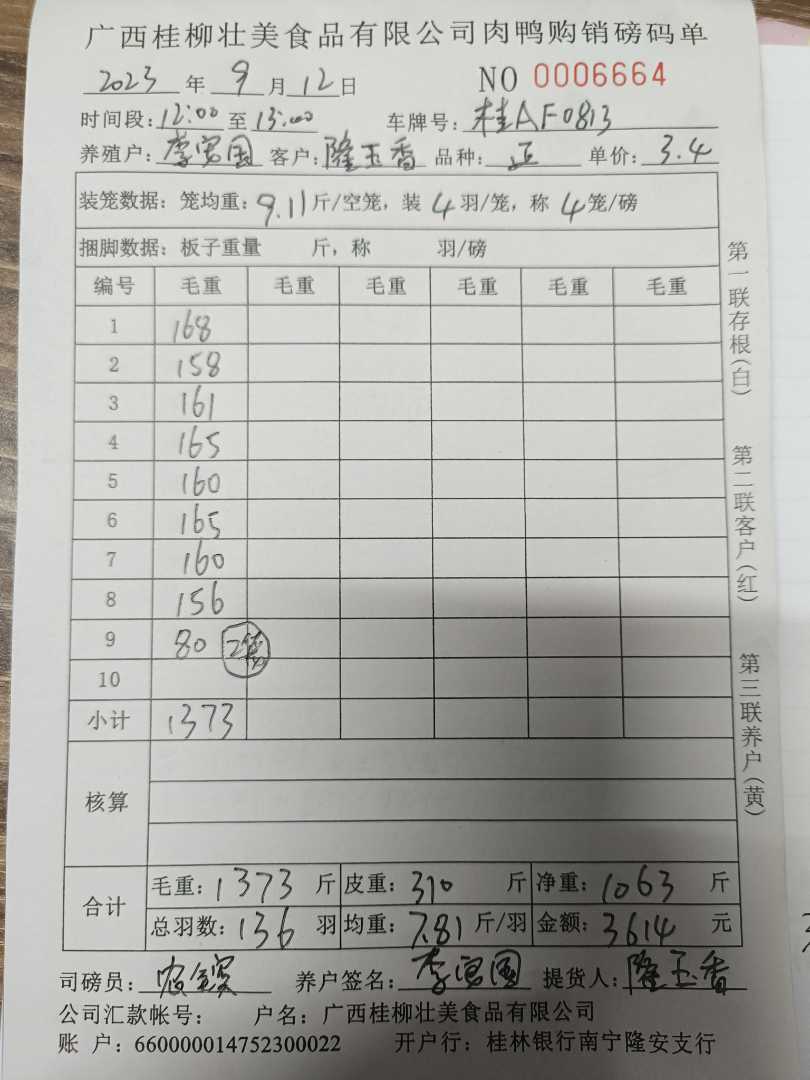 广西桂柳壮美食品有限公司肉鸭购销磅码单
2023 年 9 月 12 日 NO 0006664
时间段: 12:00 至 13:00 车牌号: 桂AF0813
养殖户: 李寓国 客户: 隆玉香 品种: 正 单价: 3.4
装笼数据: 笼均重: 9.11 斤/空笼, 装 4 羽/笼, 称 4 笼/磅
捆脚数据: 板子重量 斤, 称 羽/磅
编号 毛重 毛重 毛重 毛重 毛重 毛重
1 168
2 158
3 161
4 165
5 160
6 165
7 160
8 156
9 80 2笼
10
小计 1373
核算
合计
毛重: 1373 斤 皮重: 310 斤 净重: 1063 斤
总羽数: 136 羽 均重: 7.81 斤/羽 金额: 3614 元
司磅员: 养户签名: 李寓国 提货人: 隆玉香
公司汇款帐号: 户名: 广西桂柳壮美食品有限公司
账 户: 660000014752300022 开户行: 桂林银行南宁隆安支行
第一联存根(白) 第二联客户(红) 第三联养户(黄)